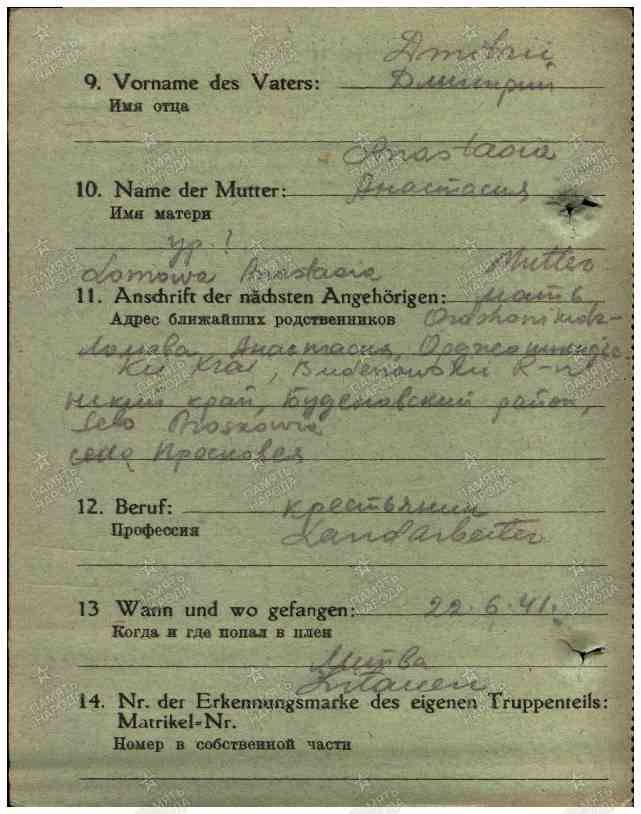 Dmitrii
9. Vorname des Vaters: Дмитрий
Имя отца
Anastasia
10. Name der Mutter: Анастасия
Имя матери
ур. !
Lomowa Anastasia Mutter
11. Anschrift der nächsten Angehörigen: мать
Адрес ближайших родственников
Анастасия,
Krai, R-n
край, Буденовский район,
Selo
село Прасковея
12. Beruf: крестьянин
Профессия Landarbeiter
13 Wann und wo gefangen: 22.6.41.
Когда и где попал в плен
Литва
Litauen
14. Nr. der Erkennungsmarke des eigenen Truppenteils:
Matrikel=Nr.
Номер в собственной части
ПАМЯТЬ
НАРОДА